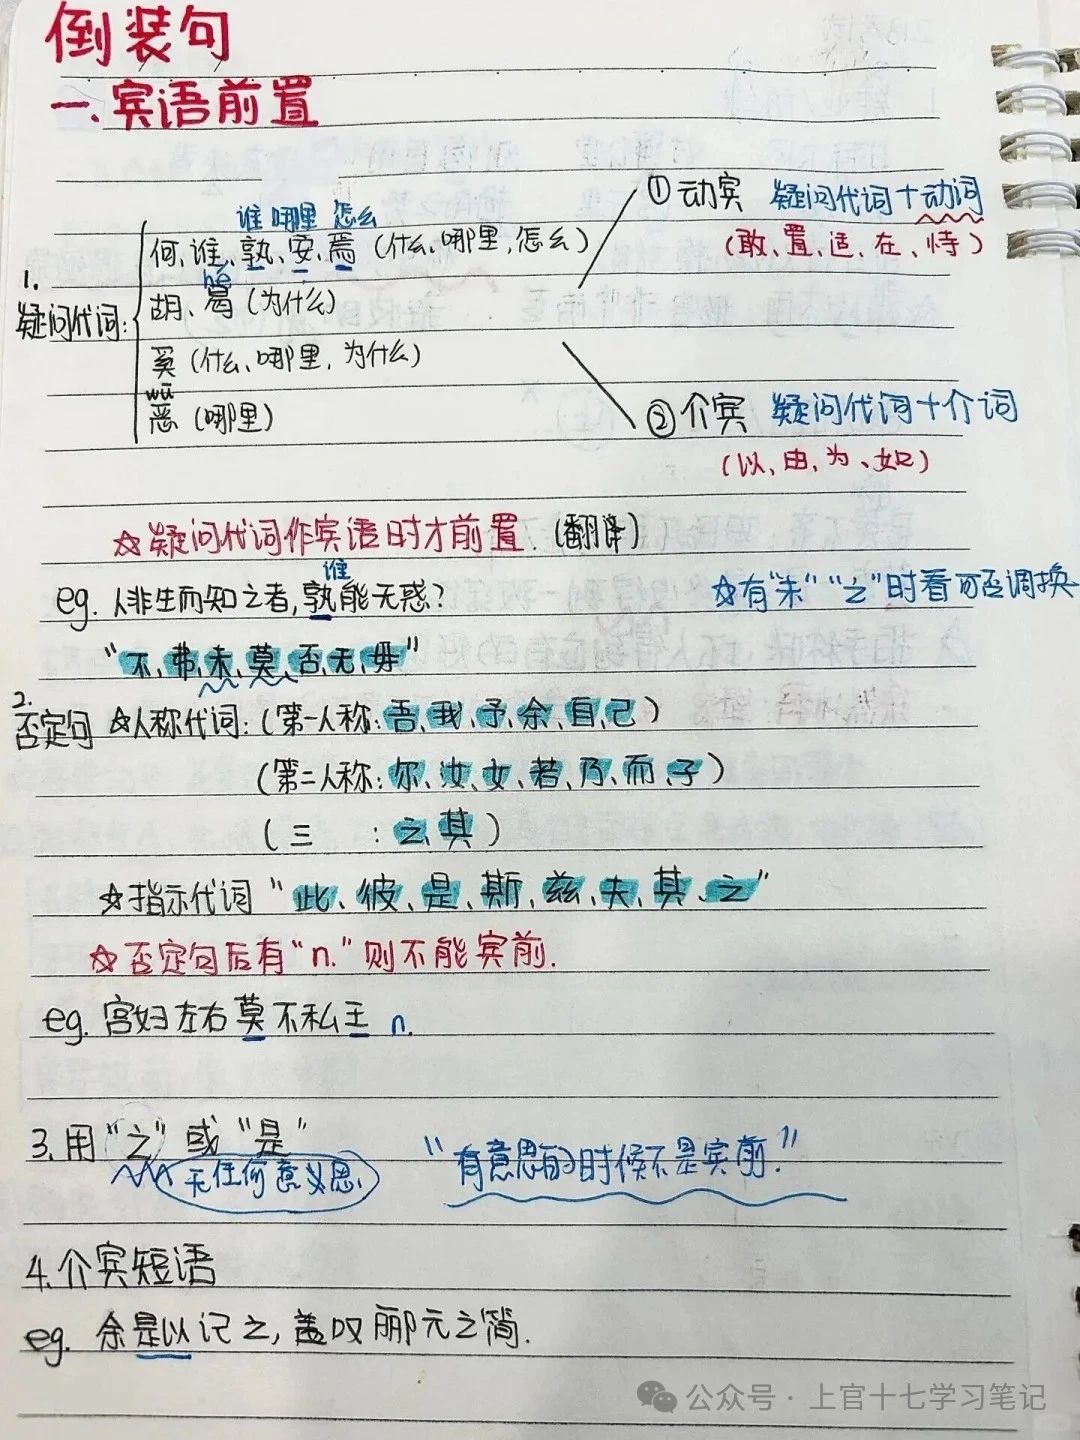 倒装句
一.宾语前置
①动宾 疑问代词+动词
(敢、置、适、在、恃)
谁 哪里 怎么
1.
疑问代词:
何、谁、孰、安、焉(什么、哪里,怎么)
hé
胡、曷(为什么)
奚(什么、哪里,为什么)
wū
恶(哪里)
②介宾 疑问代词+介词
(以、由、为、如)
☆疑问代词作宾语时才前置.(翻译)
谁
eg. 人非生而知之者,孰能无惑?
☆有"未""之"时看可否调换
"不、弗、未、莫、否、无、毋"
2.
否定句
☆人称代词:(第一人称:吾、我、予、余、自、己)
(第二人称:尔、汝、女、若、乃、而、子)
(三 :之、其)
☆指示代词"此、彼、是、斯、兹、夫、其、之"
☆否定句后有"n."则不能宾前.
eg. 宫妇左右莫不私王 n.
3.用"之"或"是"
无任何意义思.
"有意思的时候不是宾前."
4.介宾短语
eg. 余是以记之,盖叹郦元之简.
公众号·上官十七学习笔记